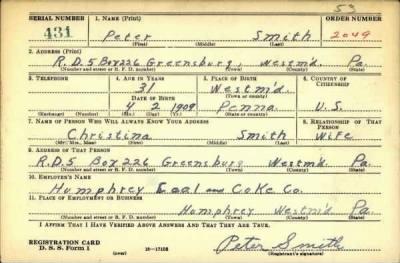 53
SERIAL NUMBER 1. NAME (Print) ORDER NUMBER
431 Peter Smith 2049
(First) (Middle) (Last)
2. ADDRESS (Print)
R.D.5 Box 226 Greensburg Westm'd. Pa.
(Number and street or R. F. D. number) (Town) (County) (State)
3. TELEPHONE 4. AGE IN YEARS 5. PLACE OF BIRTH 6. COUNTRY OF CITIZENSHIP
31 Westm'd.
DATE OF BIRTH (Town or county)
4 2 1909 Penna. U.S.
(Exchange) (Number) (Mo.) (Day) (Yr.) (State or country)
7. NAME OF PERSON WHO WILL ALWAYS KNOW YOUR ADDRESS 8. RELATIONSHIP OF THAT PERSON
Christina Smith Wife
(Mr., Mrs., Miss) (First) (Middle) (Last)
9. ADDRESS OF THAT PERSON
R.D.5 Box 226 Greensburg Westm'd. Pa.
(Number and street or R. F. D. number) (Town) (County) (State)
10. EMPLOYER'S NAME
Humphrey Coal and Coke Co.
11. PLACE OF EMPLOYMENT OR BUSINESS
Humphrey Westm'd Pa.
(Number and street or R. F. D. number) (Town) (County) (State)
I AFFIRM THAT I HAVE VERIFIED ABOVE ANSWERS AND THAT THEY ARE TRUE.
REGISTRATION CARD
D. S. S. Form 1 (over) 16—17105 Peter Smith
(Registrant's signature)